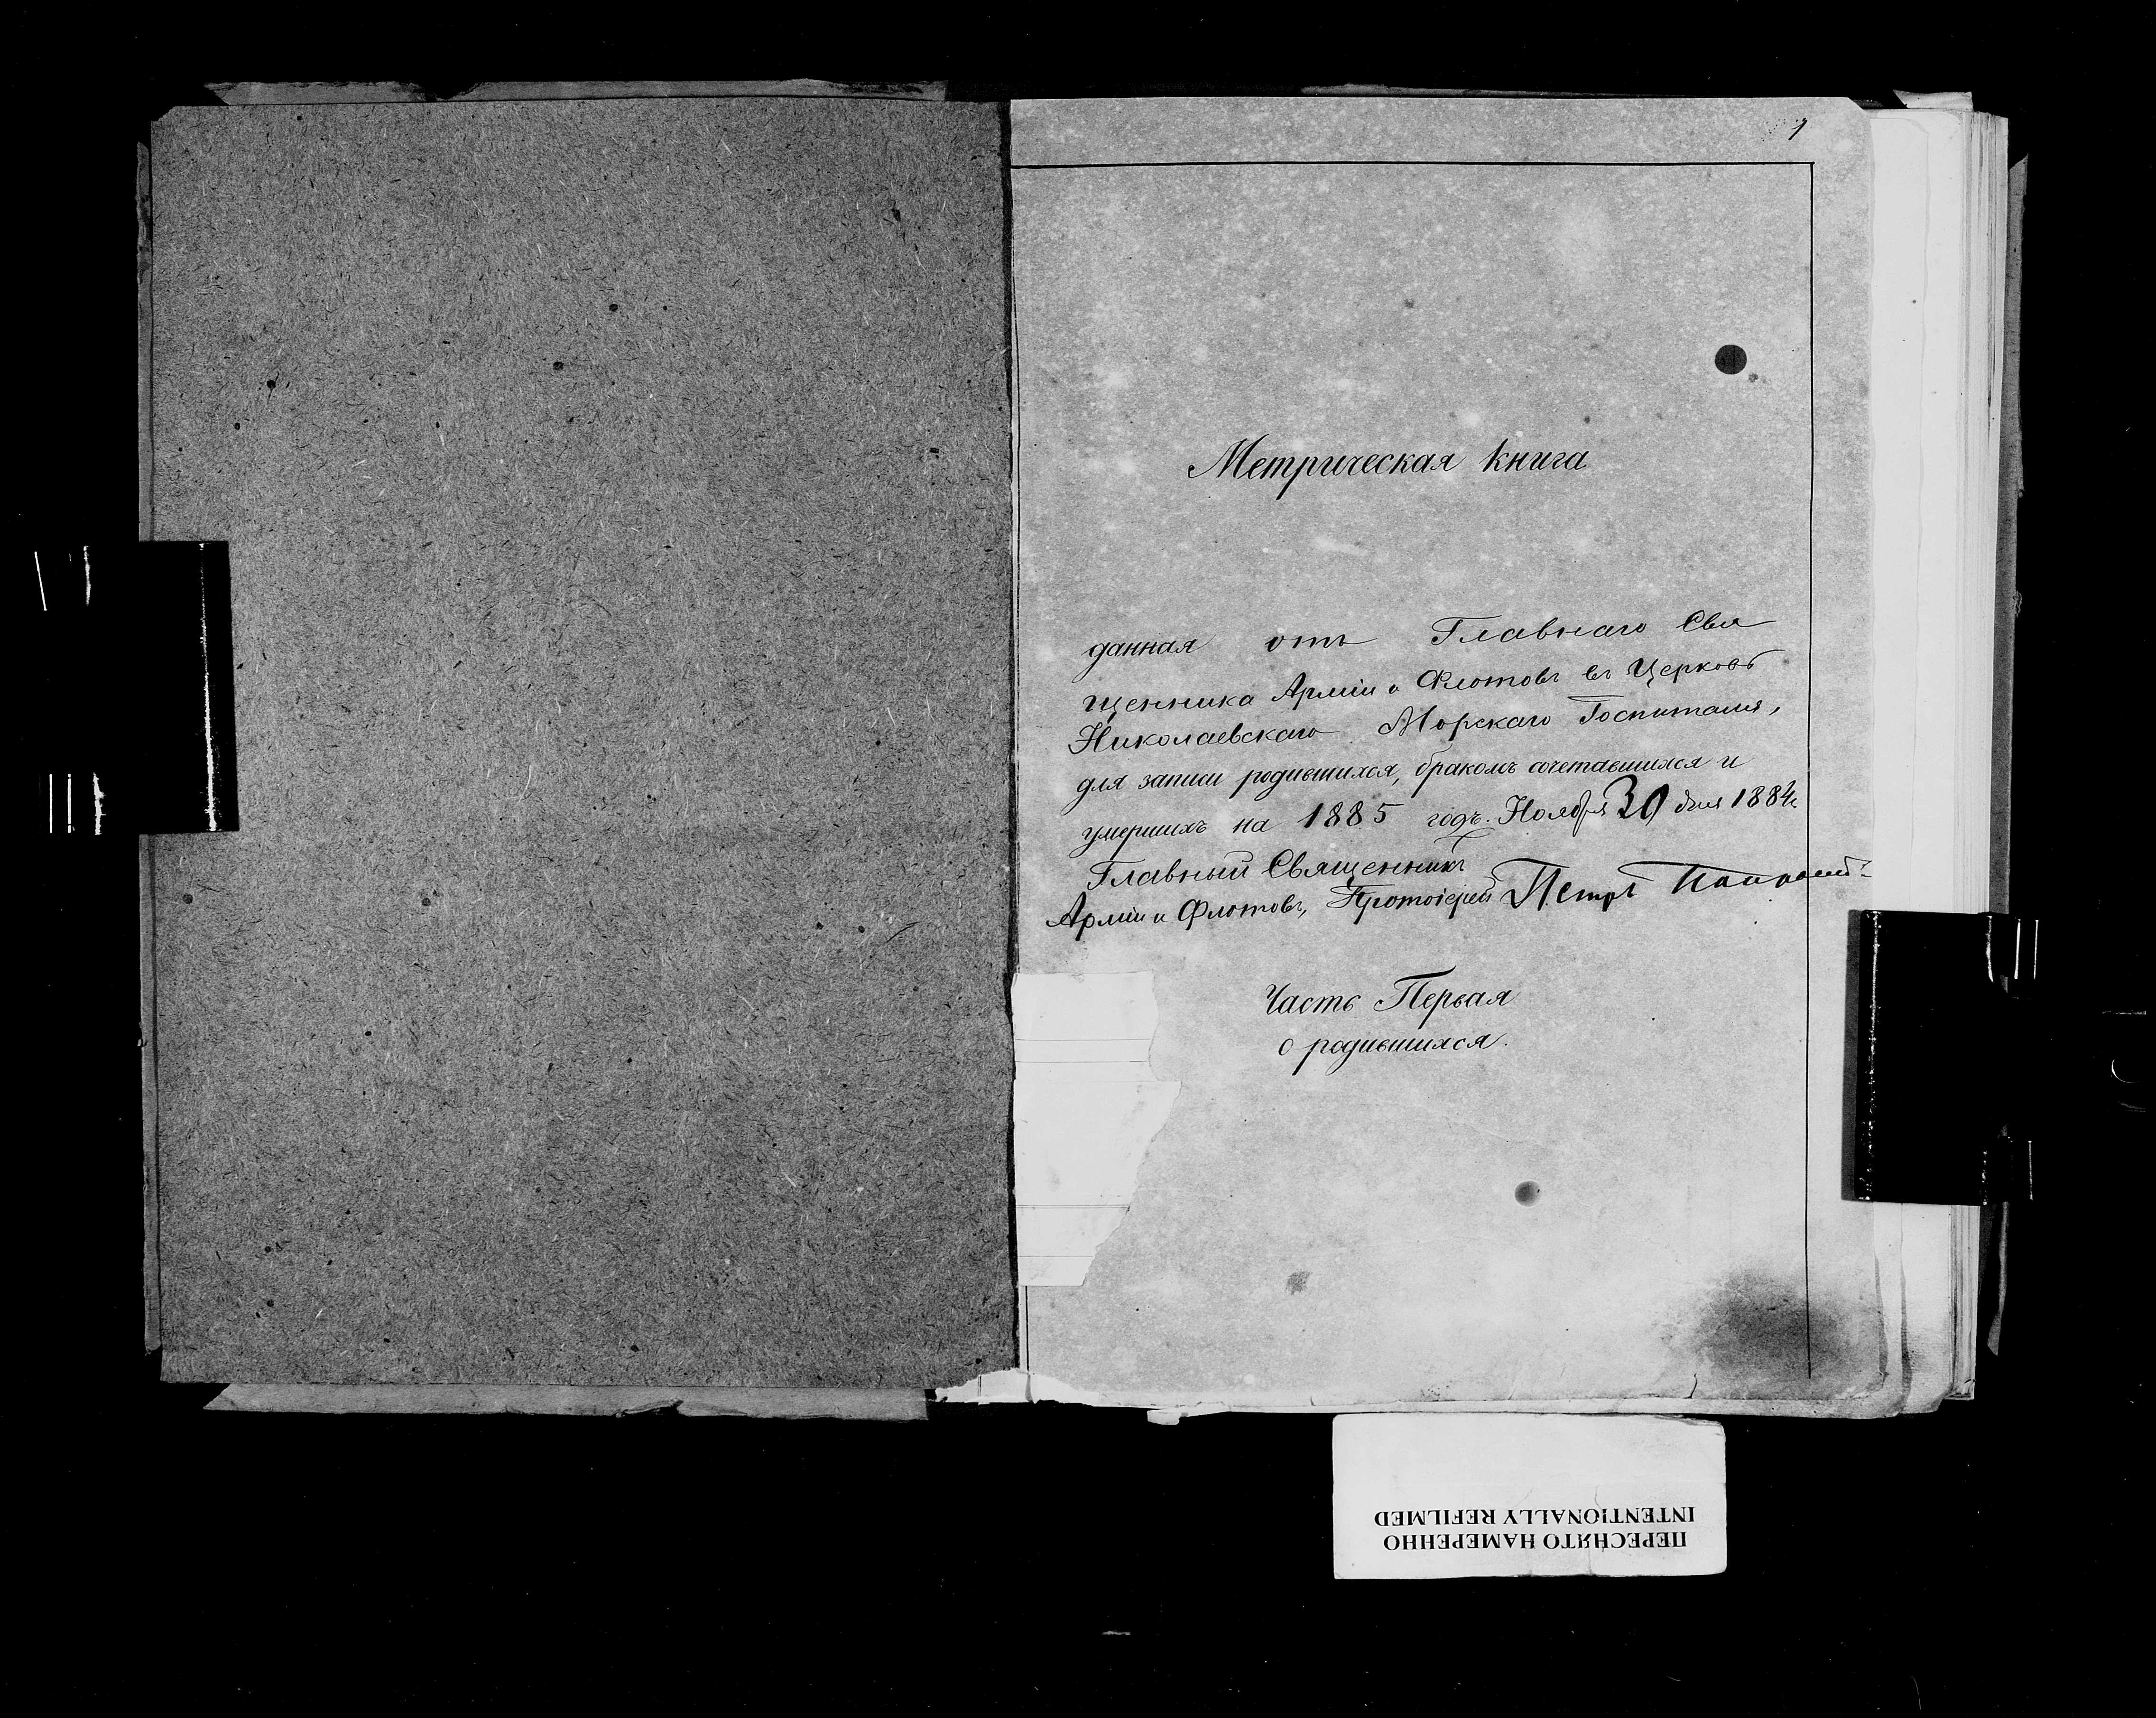 1
Метрическая книга
данная отъ Главнаго Свя
щенника Арміи и Флотовъ въ Церковь
Николаевскаго Морскаго Госпиталя,
для записи родившихся, бракомъ сочетавшихся и
умершихъ на 1885 годъ. Ноября 30 дня 1884 г.
Главный Священникъ
Арміи и Флотовъ, Протоіерей Петръ
Часть Первая
о родившихся.
ПЕРЕСНЯТО НАМЕРЕННО
INTENTIONALLY REFILMED